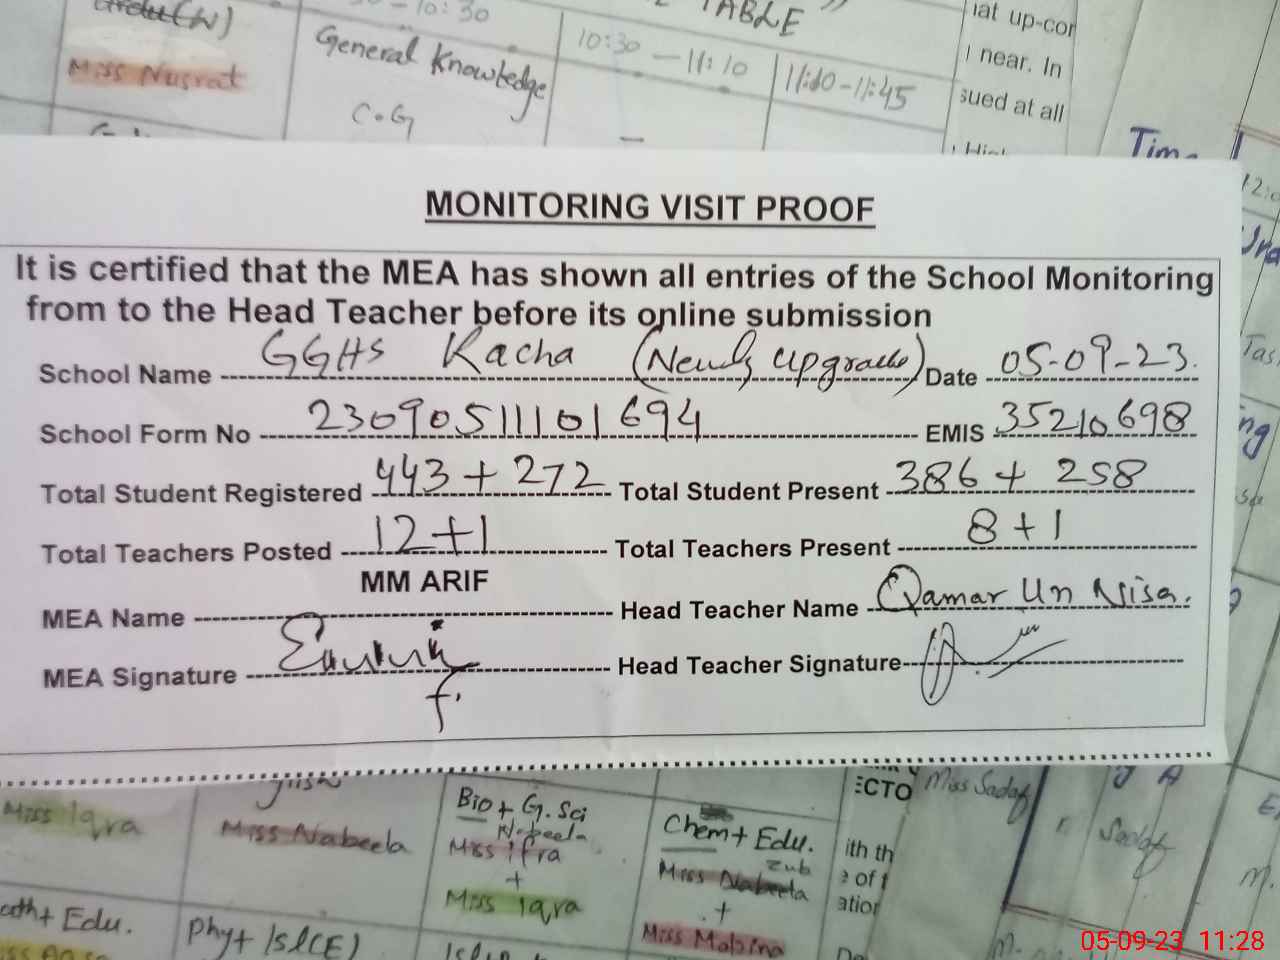 (W)
- 10:30
TABLE"
Miss Nusrat
General Knowledge
C.G
10:30 - 11:10
11:10-11:45
up-cor
near. In
sued at all
MONITORING VISIT PROOF
It is certified that the MEA has shown all entries of the School Monitoring
from to the Head Teacher before its online submission
School Name GGHS Kacha (Newly Upgraded) Date 05-09-23.
School Form No 230905111101694 EMIS 35210698
Total Student Registered 443 + 272 Total Student Present 386 + 258
Total Teachers Posted 12+1 Total Teachers Present 8+1
MM ARIF
MEA Name Head Teacher Name Qamar Un Nisa.
MEA Signature Head Teacher Signature
Miss Iqra
Miss Nabeela
Bio + G. Sci
Nabeela
Miss Ifra
+
Miss Iqra
Chem + Edu.
Zub
Miss Nabeela
+
Miss Mobina
ECTO
Miss Sadaf
Sadaf
ith th
e of
ation
+ Edu.
Phy + Isl(E)
05-09-23 11:28